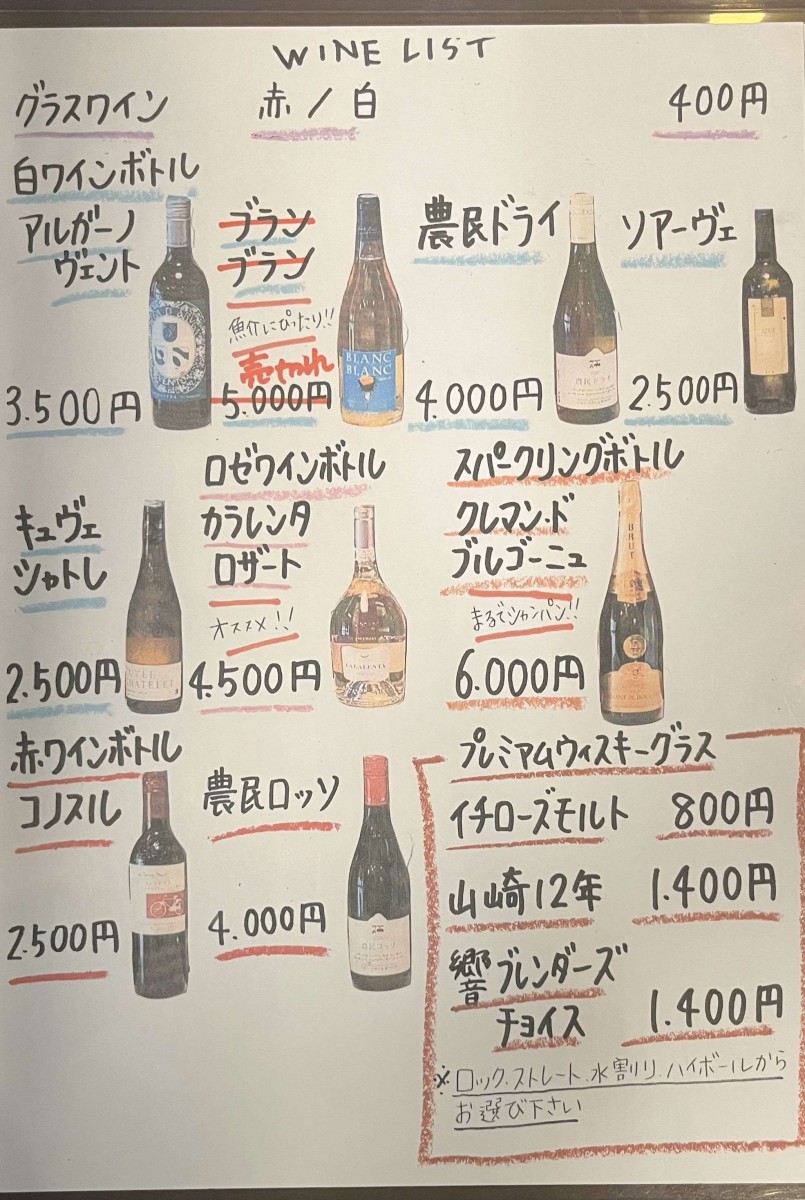 WINE LIST
グラスワイン 赤/白 400円
白ワインボトル
アルガーノ
ヴェント
3.500円
ブラン
ブラン
魚介にぴったり!!
売切れ
5.000円
BLANC
BLANC
農民ドライ
4.000円
農民ドライ
ソアーヴェ
2.500円
キュヴェ
シャトレ
2.500円
CHATELET
ロゼワインボトル
カラレンタ
ロザート
オススメ!!
4.500円
CALALENTA
スパークリングボトル
クレマン.ド
ブルゴーニュ
まるでシャンパン!!
6.000円
BRUT
赤ワインボトル
コノスル
2.500円
農民ロッソ
4.000円
農民ロッソ
プレミアムウィスキーグラス
イチローズモルト 800円
山崎12年 1.400円
響ブレンダーズ
チョイス 1.400円
※ロック、ストレート、水割り、ハイボールから
お選び下さい